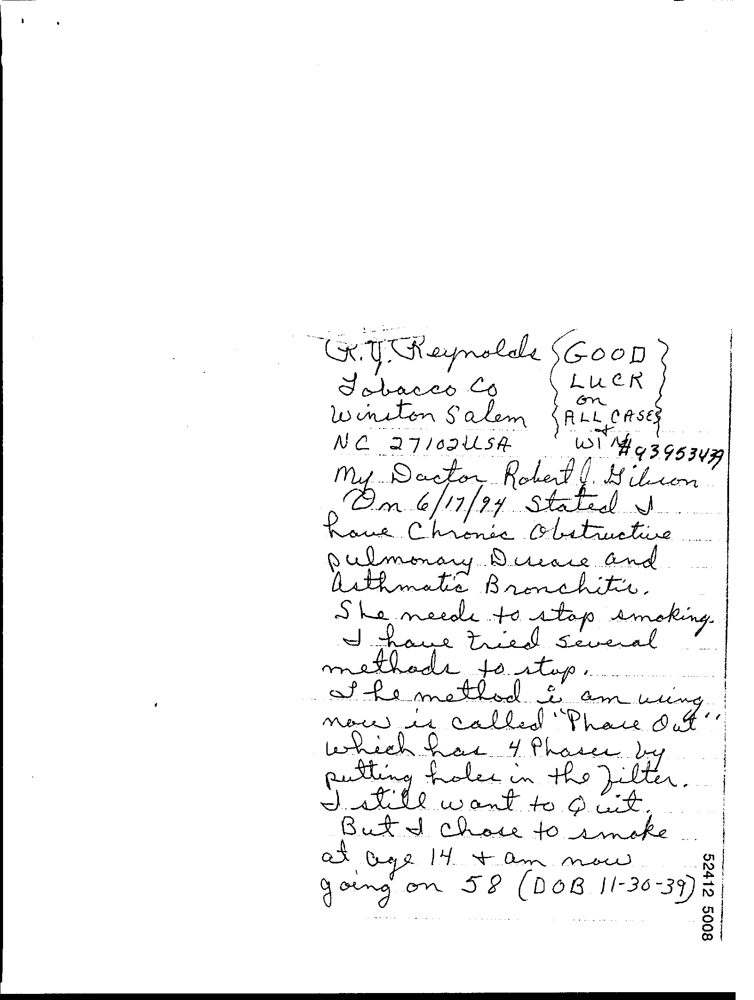 R.J. Reynolds {GOOD}
Tobacco Co {LUCK}
on
Winston Salem {ALL CASES}
+
NC 27102 USA WIN #93953439
My Doctor Robert J. Gibson
On 6/17/94 Stated I
have Chronic Obstructive
pulmonary Disease and
Asthmatic Bronchitis.
She needs to stop smoking.
I have tried several
methods to stop.
The method i am using
now is called "Phase Out"
which has 4 Phases by
putting holes in the filter.
I still want to Quit.
But I chose to smoke
at age 14 + am now
going on 58 (DOB 11-30-39)
52412 5008